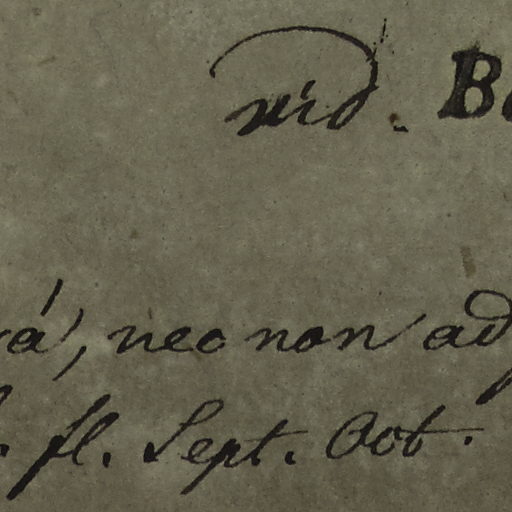 vid. B
á, nec non ad
fl. Sept. Oct.